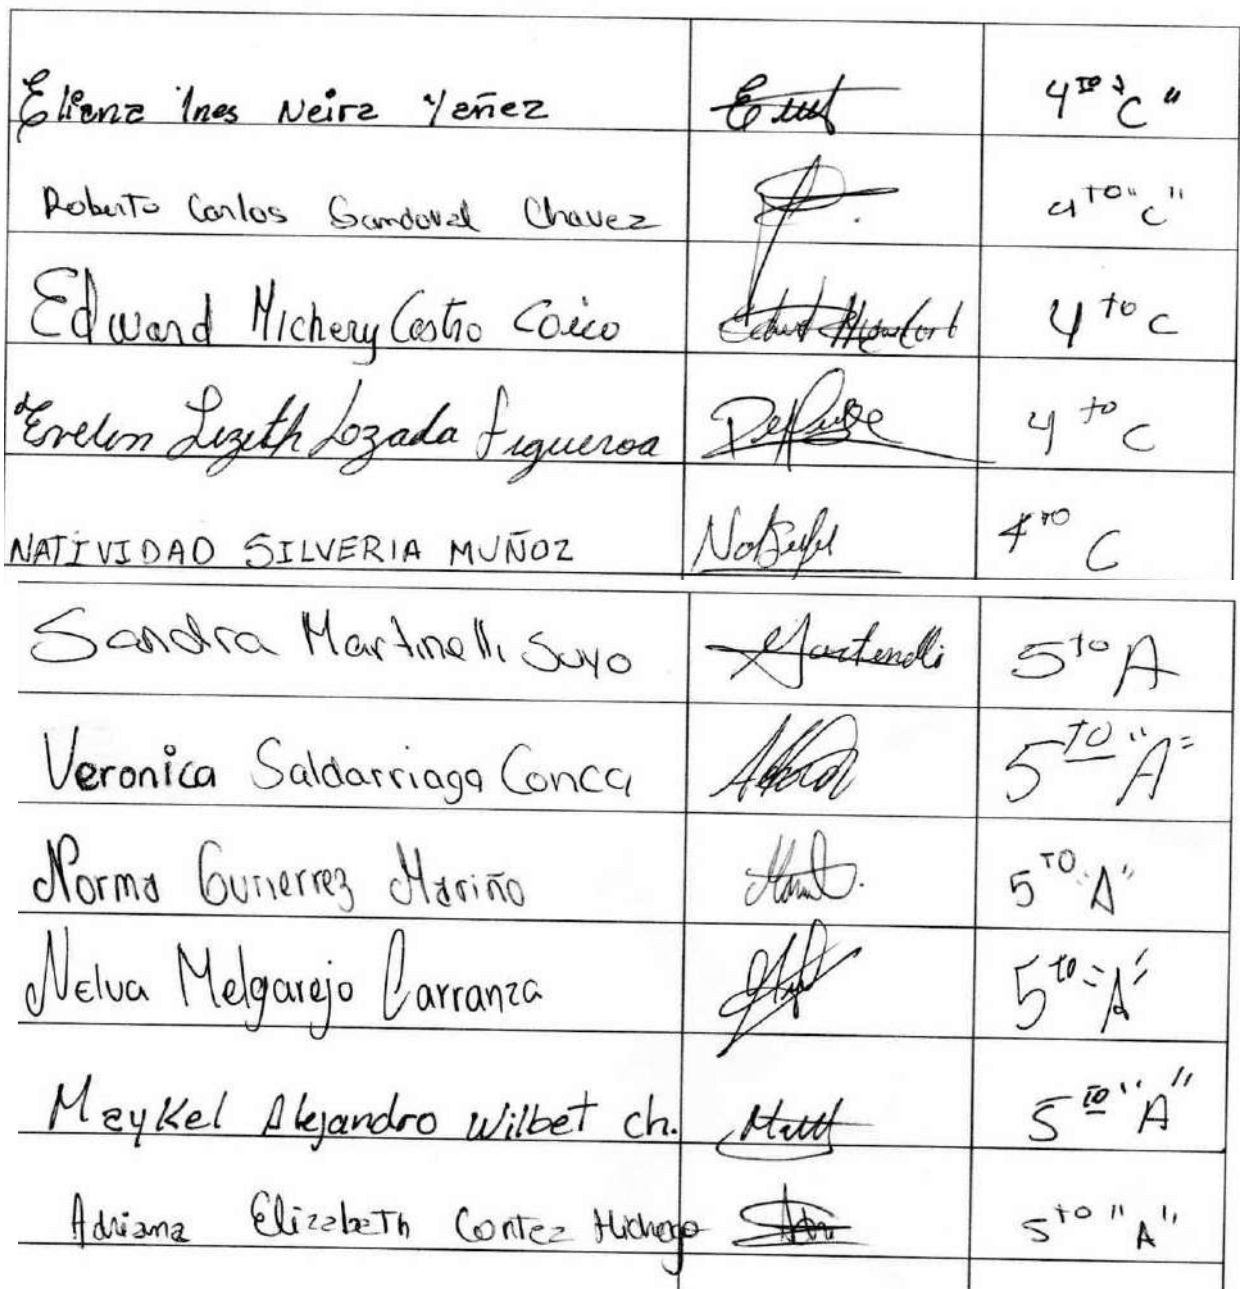 Eliana Ines Neira Yañez 4to "C"
Roberto Carlos Sandoval Chavez 4TO "C"
Edward Michery Castro Coico 4to C
Evelin Lizeth Lozada Figueroa 4to C
NATIVIDAD SILVERIA MUÑOZ 4to C
Sandra Martinelli Suyo Martinelli 5to A
Veronica Saldarriaga Conca 5TO "A"
Norma Gutierrez Mariño 5TO "A"
Nelva Melgarejo Carranza 5to "A"
Maykel Alejandro Wilbet ch. 5to "A"
Adriana Elizabeth Cortez 5to "A"